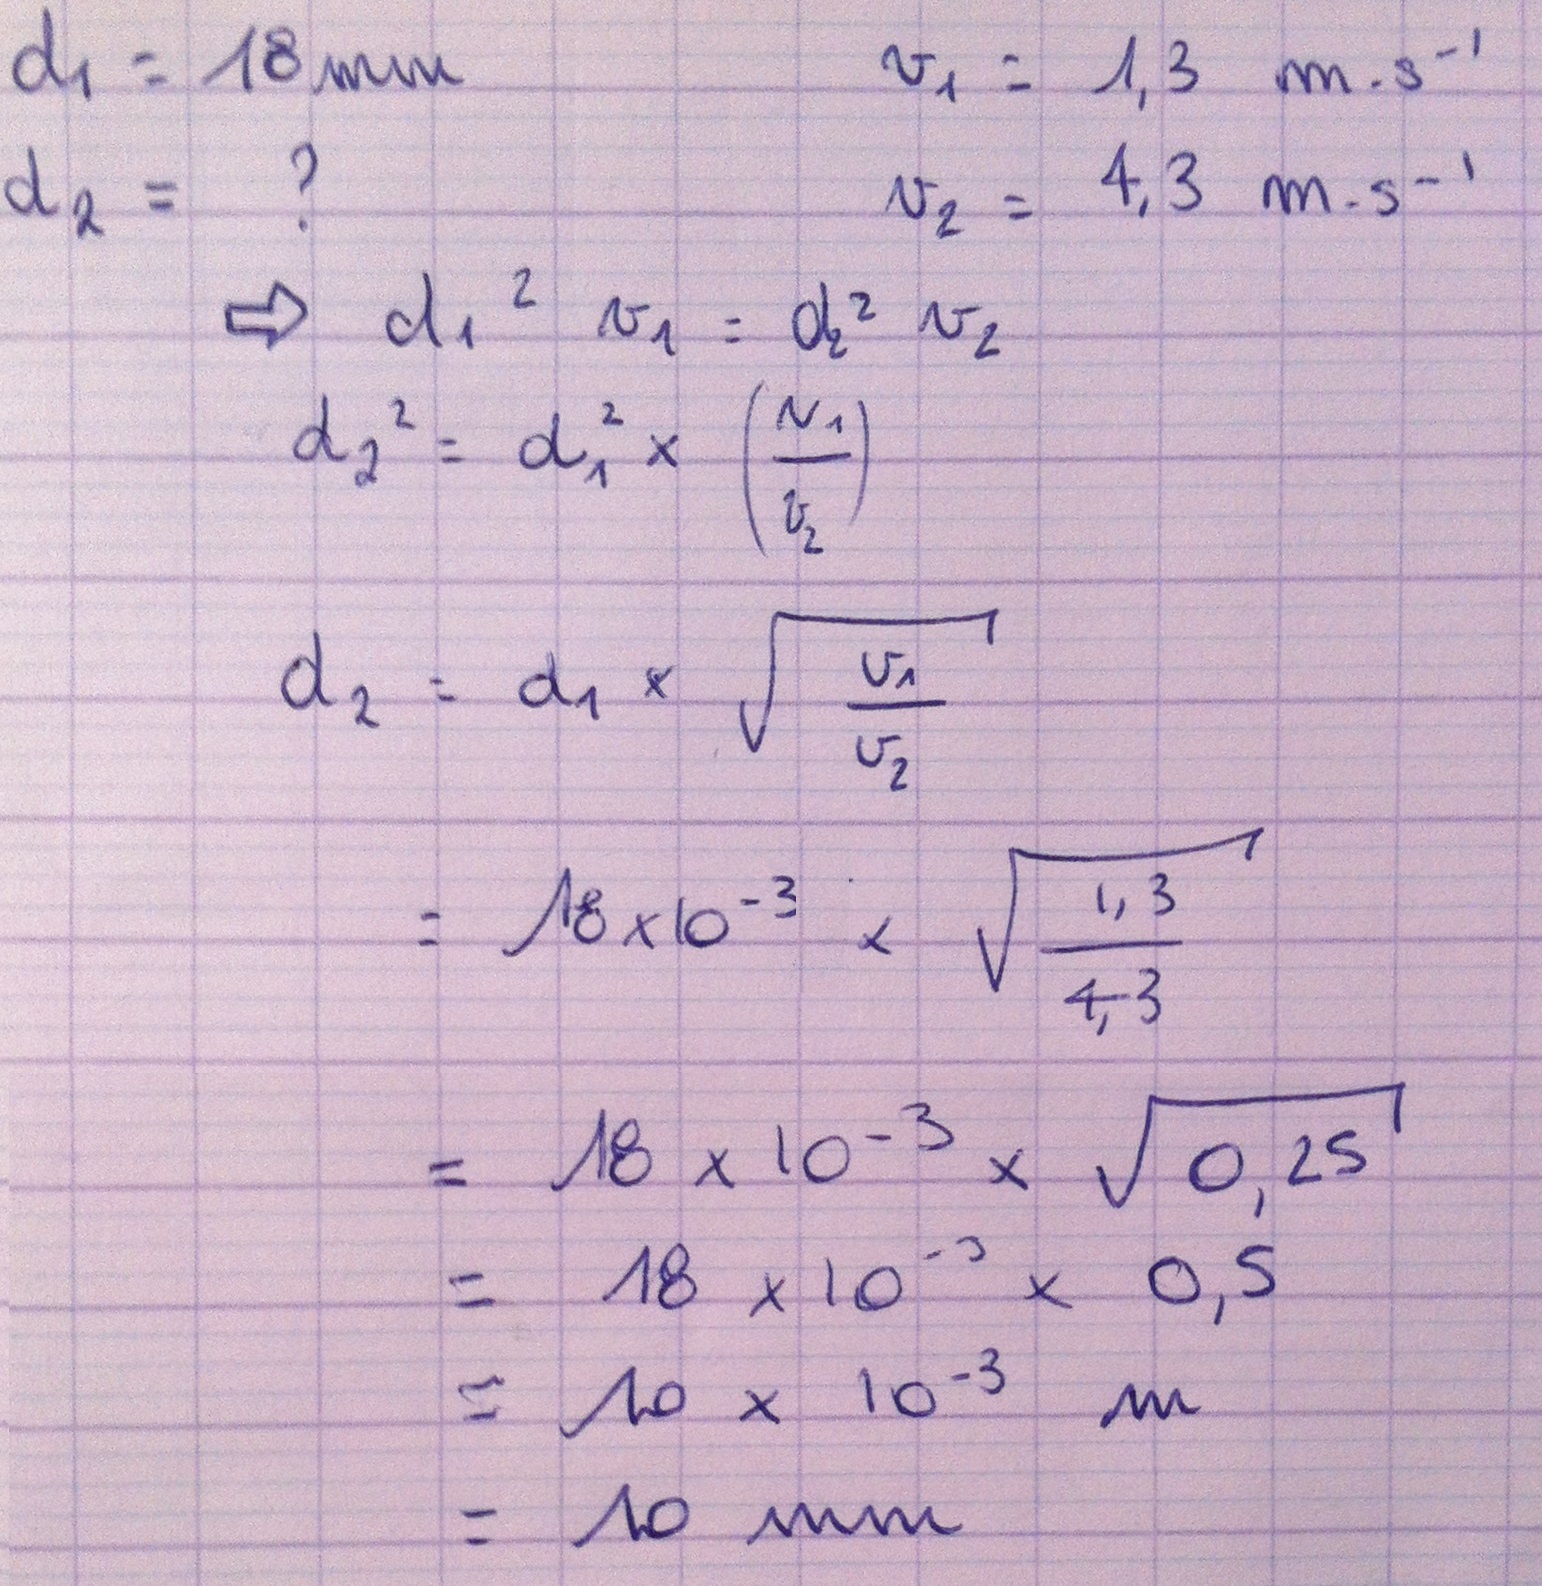 d₁ = 18 mm v₁ = 1,3 m.s⁻¹
d₂ = ? v₂ = 4,3 m.s⁻¹
⇨ d₁² v₁ = d₂² v₂
d₂² = d₁² × (v₁/v₂)
d₂ = d₁ × √(v₁/v₂)
= 18 × 10⁻³ × √(1,3/4,3)
= 18 × 10⁻³ × √0,25
= 18 × 10⁻³ × 0,5
= 10 × 10⁻³ m
= 10 mm